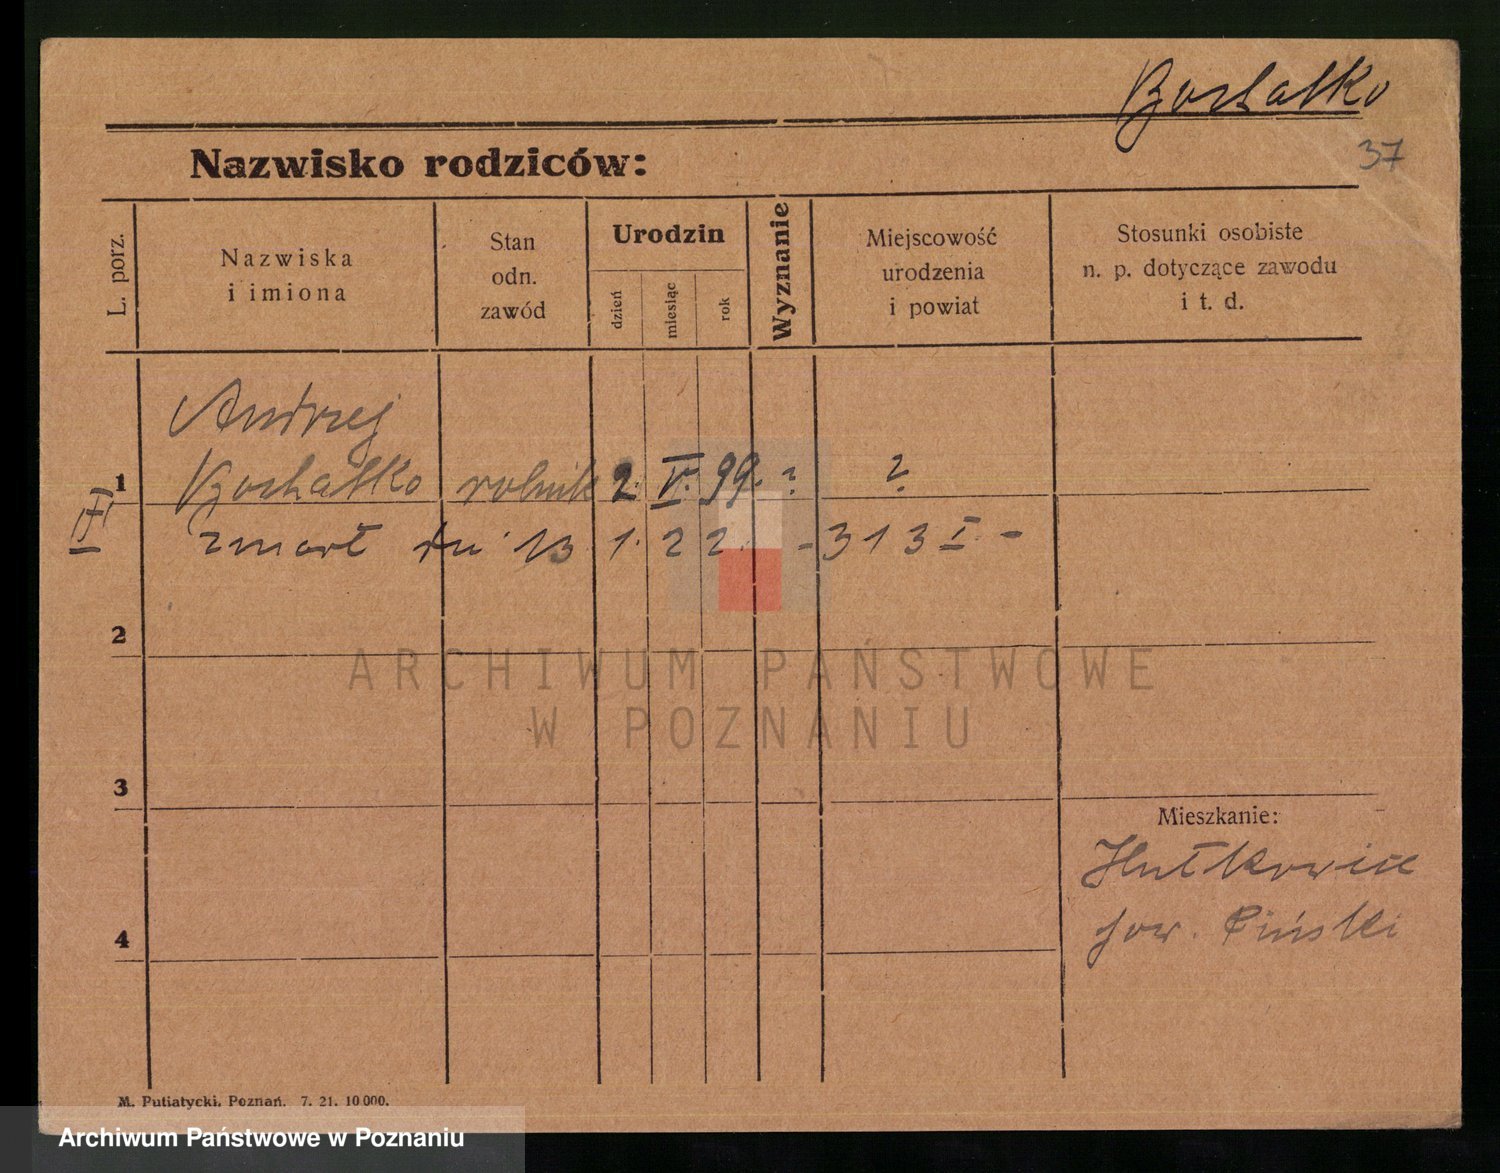 Bochatko
37
Nazwisko rodziców:
L. porz.
Nazwiska
i imiona
Stan
odn.
zawód
Urodzin
dzień
miesiąc
rok
Wyznanie
Miejscowość
urodzenia
i powiat
Stosunki osobiste
n. p. dotyczące zawodu
i t. d.
Andrzej
1 Bochatko rolnik 2. V. 99. ? ?
zmarł dn. 13 1. 22. - 313 I. -
2
3
4
Mieszkanie:
pow. Piński
M. Putiatycki, Poznań. 7. 21. 10 000.
ARCHIWUM PAŃSTWOWE
W POZNANIU
Archiwum Państwowe w Poznaniu